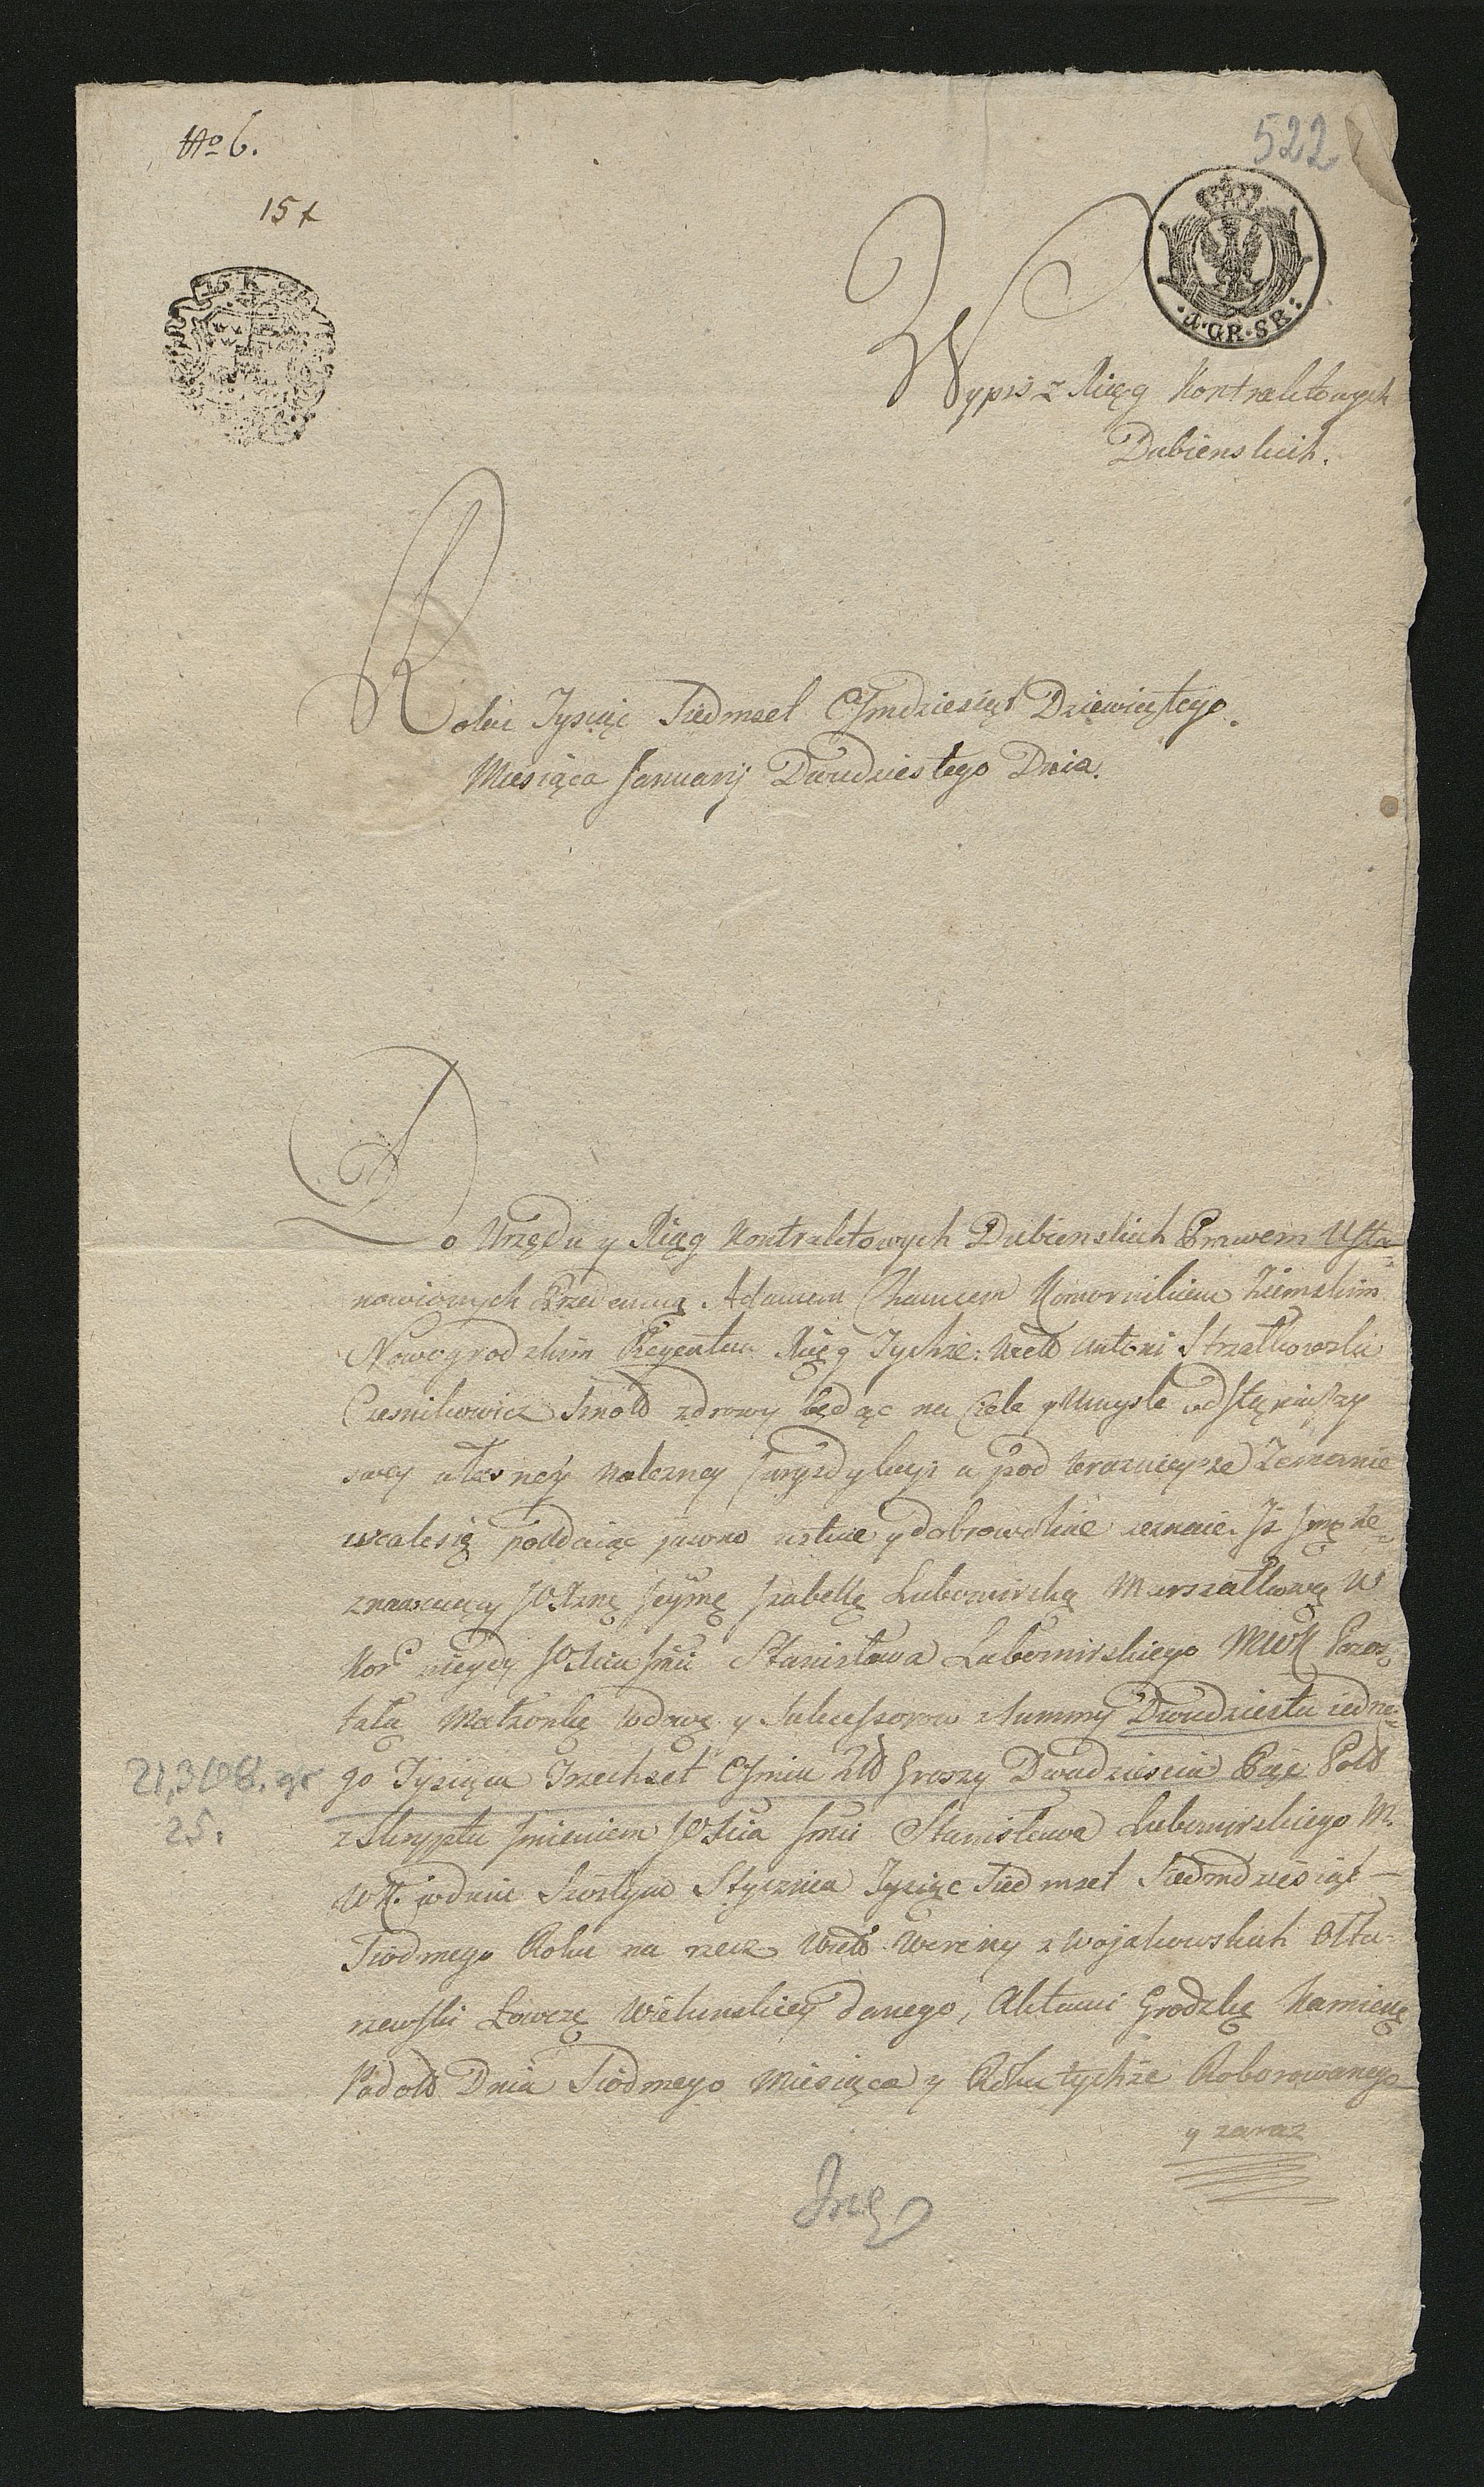 No 6.
522
15 x
4·GR·SR:
Wypis z Xiąg Kontraktowych
Dubienskich.
Roku Tysiąc Siedmset Osmdziesiąt Dziewiątego.
Miesiąca Januarij Dwudziestego Dnia.
Do Urzędu y Xiąg Kontraktowych Dubienskich Prawem Usta=
nowionych Przedemną Adamem Komornikiem Ziemskim
Nowogrodzkim Regentem Xiąg Tychże: Antoni Strzałkowski
Czesnikowicz zdrowy będąc na Ciele y Umysle odstąpiwszy
swey własney nalezney Juryzdykcyi a pod teraznieysze Zeznanie
wcale się poddaiąc jawno ustnie y dobrowolnie zeznaie. Iż ze=
znawaiący JOXznę Jeymę Izabellę Lubomirską Marszałkową W
Kor niegdy JOXcia Jmci Stanisława Lubomirskiego MWK Pozos=
tałą Małzonkę Wdowę y Sukcessorow z Summy Dwudziestu iedne=
go Tysięcy Trzechset Osmiu Złł Groszy Dwudziestu Pięć Poll
21,308. gr
25.
z Skryptu Imieniem JOXcia Jmci Stanisława Lubomirskiego M.
WK. w dniu Szostym Stycznia Tysiąc Siedmset Siedmdziesiąt
Siodmego Roku na rzecz z Wojakowskich
Łowczę Wielunskiey danego, Aktami Grodzkę Kamienę
Podoll Dnia Siodmego Miesiąca y Roku tychże Roborowanego
y zaraz